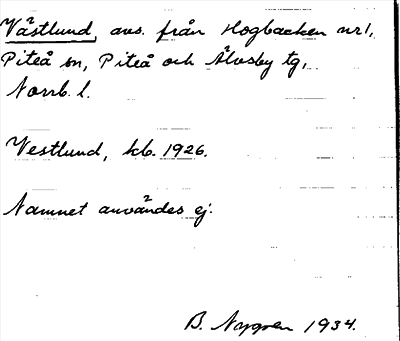 Västlund, avs. från Högbacken nr 1,
Piteå sn, Piteå och Älvsby tg,
Norrb. l.
Westlund, kb. 1926.
Namnet användes ej.
B. Nygren 1934.